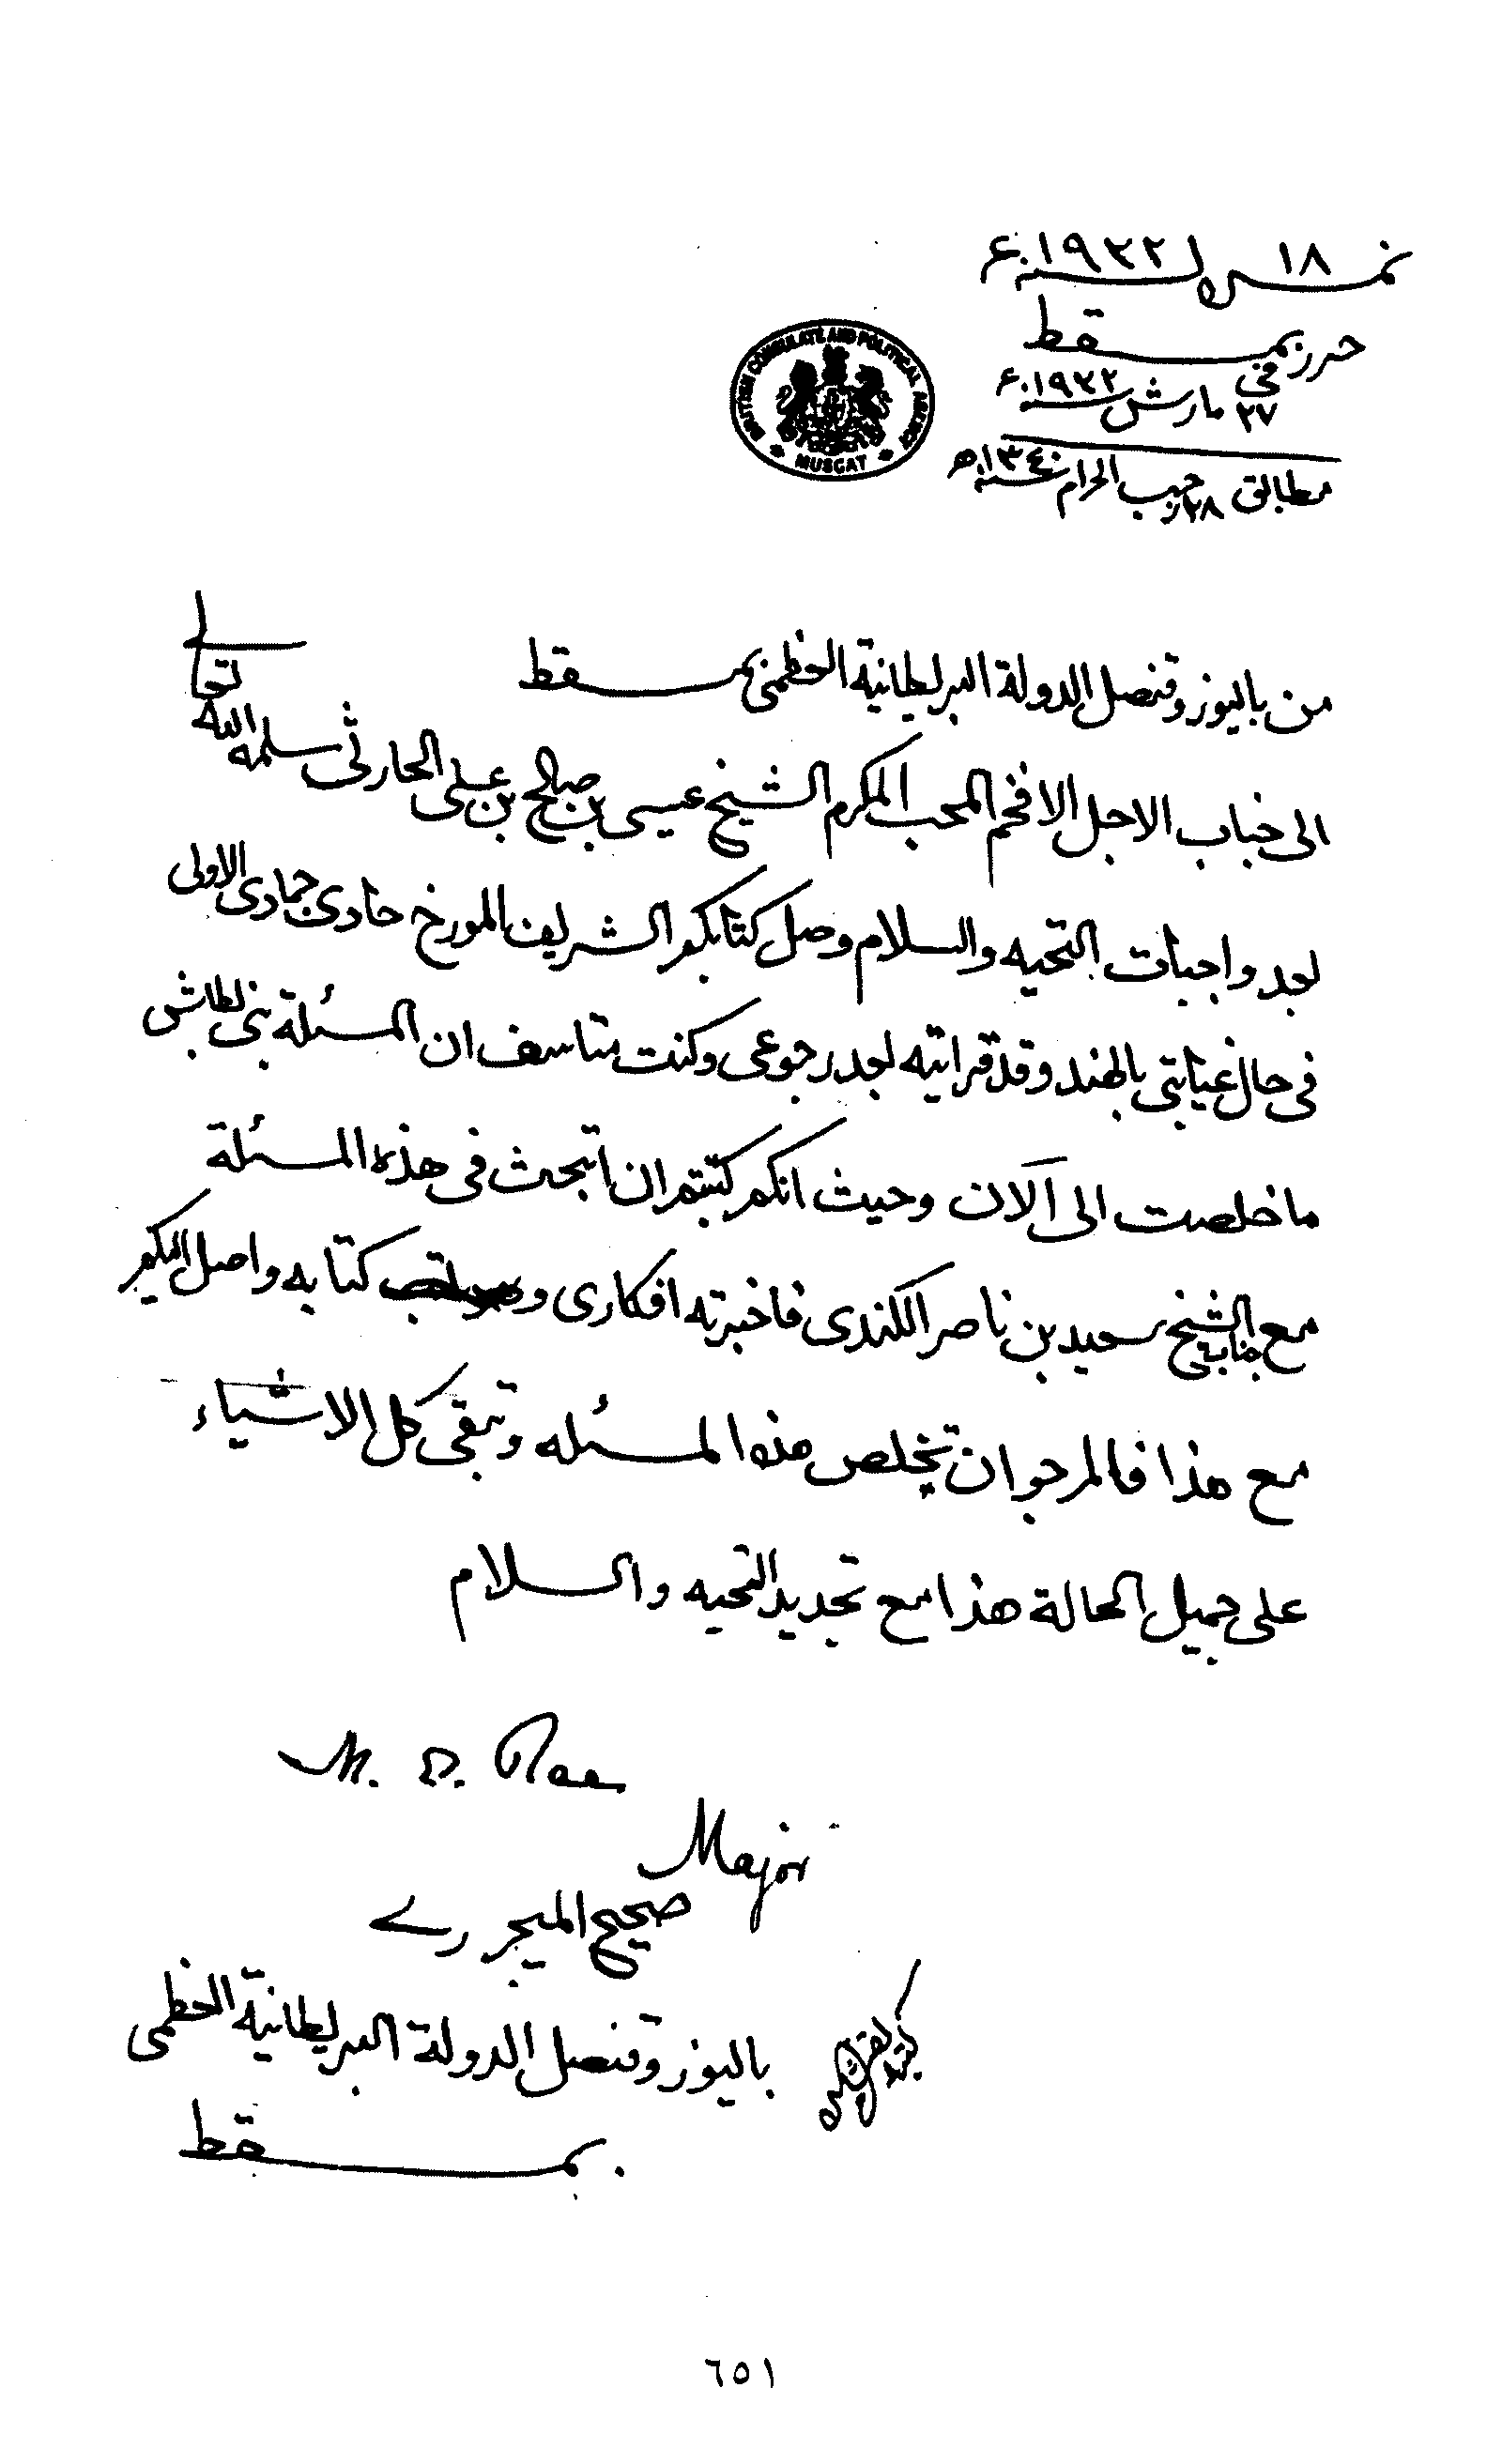 نمبر ١٨ سنة ١٩٢٢ء
حرر بمسقط
فى ٢٧ مارش سنة ١٩٢٢ء
مطابق ٢٨ رجب الحرام سنة ١٣٤٠ه
BRITISH CONSULATE AND POLITICAL AGENCY
MUSCAT
من باليوز وقنصل الدولة البريطانية العظمى بمسقط
الى جناب الاجل الافخم المحب المكرم الشيخ عيسى بن صالح بن على الحارثى سلمه الله تعالى
بعد واجبات التحيه والسلام وصل كتابكم الشريف المورخ حادى جمادى الاولى
فى حال غيابتى بالهند وقد قراتيه بعد رجوعى وكنت متاسف ان المسئلة بنى بطاش
ما خلصت الى الآن وحيث انكم كتبتم ان اتبحث فى هذه المسئلة
مع جناب الشيخ سعيد بن ناصر الكندى فاخبرته افكارى و كتابه واصل اليكم
مع هذا فالمرجو ان تخلص هذه المسئله وتبقى كل الاشياء
على جميل الحالة هذا مع تجديد التحيه والسلام
M. D. Rae
Major
صحيح الميجر رے
باليوز وقنصل الدولة البريطانية العظمى
بمسقط
٦٥١